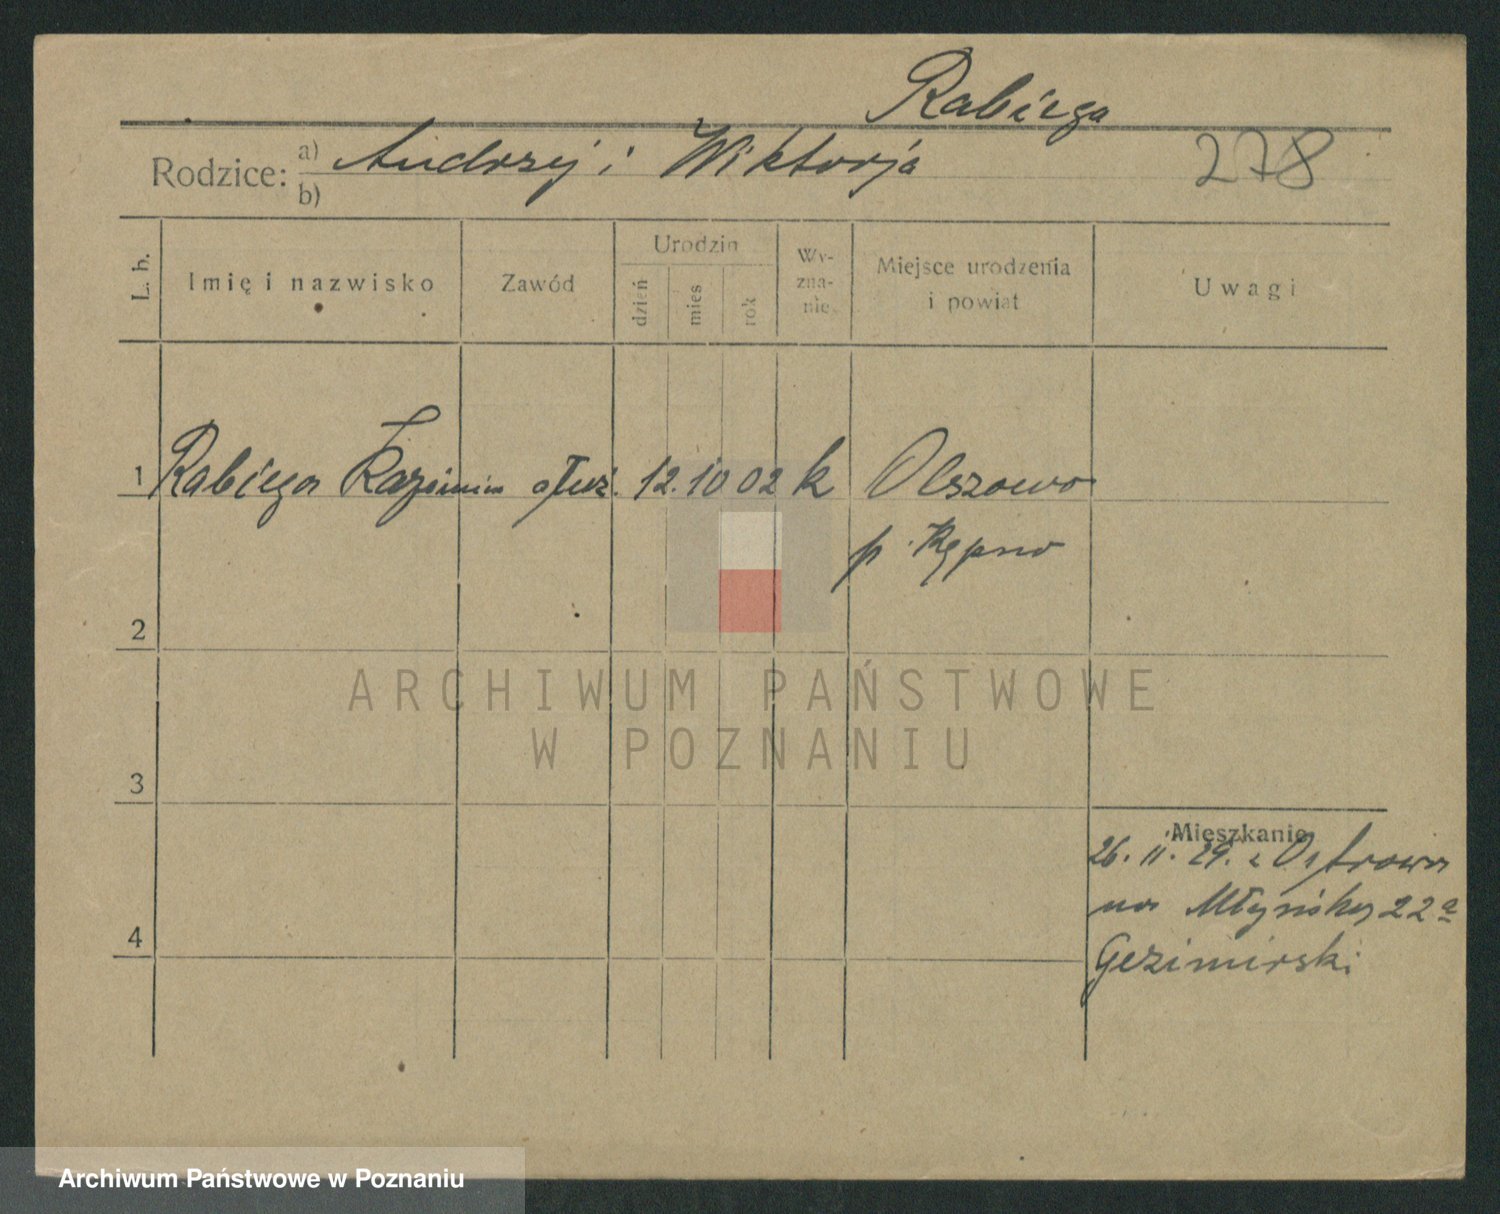 Rabiega
Rodzice: a) Andrzej i Wiktorja
b)
278
L. b.
Imię i nazwisko
Zawód
Urodzin
dzień
mies
rok
Wy-
zna-
nie
Miejsce urodzenia
i powiat
Uwagi
1 Rabiega Kazimierz służ. 12. 10 02 k Olszowa
p. Kępno
2
ARCHIWUM PAŃSTWOWE
W POZNANIU
3
Mieszkanie
26. 11. 29. z Ostrowa
na Młyńską 22a
4
Archiwum Państwowe w Poznaniu